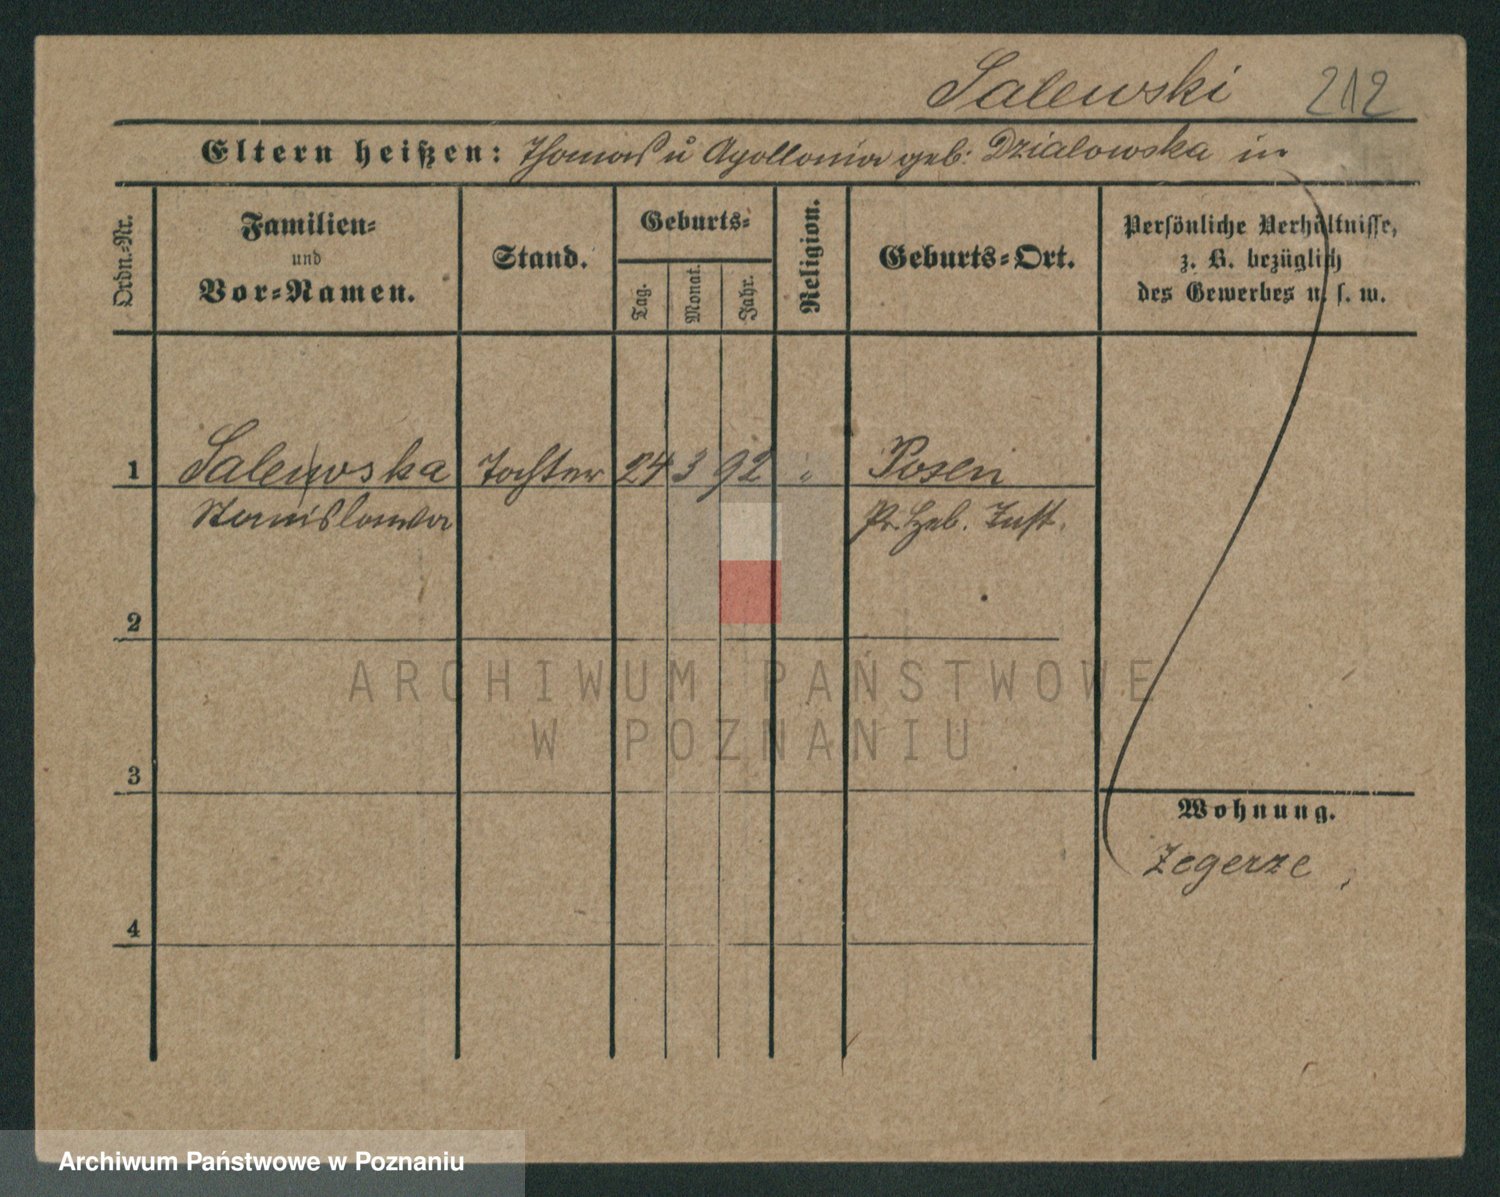 Salewski 212
Eltern heißen: Thomas u Apollonia geb: Dzialowska in
Ordn.-Nr.
Familien-
und
Vor-Namen.
Stand.
Geburts-
Tag.
Monat.
Jahr.
Religion.
Geburts-Ort.
Persönliche Verhältnisse,
z. B. bezüglich
des Gewerbes u. s. w.
1 Salewska Tochter 24 3 92 " Posen
Stanislawa Pr. Heb. Inst.
2
ARCHIWUM PAŃSTWOWE
W POZNANIU
3
Wohnung.
Zegerze
4
Archiwum Państwowe w Poznaniu